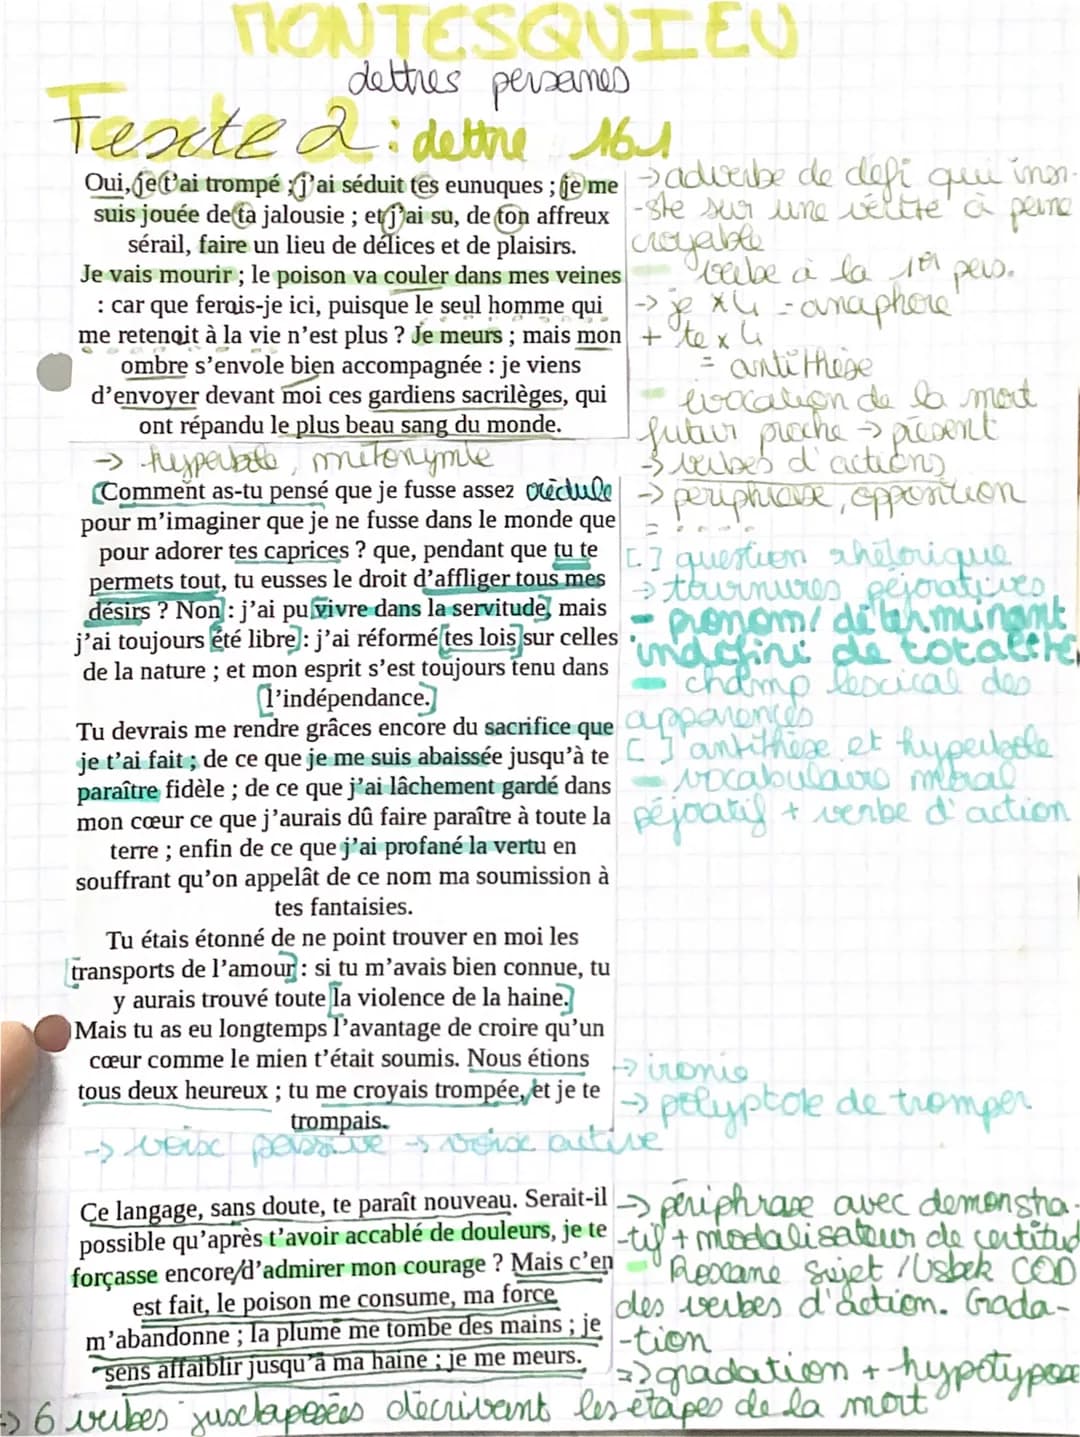 MONTESQUIEU
Lettres persanes
Texte 2 : Lettre 161
Oui, je t'ai trompé ; j'ai séduit tes eunuques ; je me
suis jouée de ta jalousie ; et j'ai su, de ton affreux
sérail, faire un lieu de délices et de plaisirs.
Je vais mourir ; le poison va couler dans mes veines
: car que ferais-je ici, puisque le seul homme qui
me retenait à la vie n'est plus ? Je meurs ; mais mon
ombre s'envole bien accompagnée : je viens
d'envoyer devant moi ces gardiens sacrilèges, qui
ont répandu le plus beau sang du monde.
-> adverbe de défi qui insi-
-ste sur une vérité à peine
croyable
verbe à la 1ère pers.
-> je x4 = anaphore
+ te x4
= antithèse
évocation de la mort
futur proche -> présent
-> verbes d'actions
-> périphrase, opposition
= - - - - -
-> hyperbole, métonymie
Comment as-tu pensé que je fusse assez crédule
pour m'imaginer que je ne fusse dans le monde que
pour adorer tes caprices ? que, pendant que tu te
permets tout, tu eusses le droit d'affliger tous mes
désirs ? Non : j'ai pu vivre dans la servitude, mais
j'ai toujours été libre : j'ai réformé tes lois sur celles
de la nature ; et mon esprit s'est toujours tenu dans
l'indépendance.
Tu devrais me rendre grâces encore du sacrifice que
je t'ai fait ; de ce que je me suis abaissée jusqu'à te
paraître fidèle ; de ce que j'ai lâchement gardé dans
mon cœur ce que j'aurais dû faire paraître à toute la
terre ; enfin de ce que j'ai profané la vertu en
souffrant qu'on appelât de ce nom ma soumission à
tes fantaisies.
[ ] question rhétorique
-> tournures péjoratives
- pronom / déterminant
indéfini de totalité
- champ lexical des
apparences
[ ] antithèse et hyperbole
- vocabulaire moral
péjoratif + verbe d'action
Tu étais étonné de ne point trouver en moi les
transports de l'amour : si tu m'avais bien connue, tu
y aurais trouvé toute la violence de la haine.
Mais tu as eu longtemps l'avantage de croire qu'un
cœur comme le mien t'était soumis. Nous étions
tous deux heureux ; tu me croyais trompée, et je te
trompais.
-> ironie
-> polyptote de tromper
-> voix passive -> voix active
Ce langage, sans doute, te paraît nouveau. Serait-il
possible qu'après t'avoir accablé de douleurs, je te
forçasse encore d'admirer mon courage ? Mais c'en
est fait, le poison me consume, ma force
m'abandonne ; la plume me tombe des mains ; je
sens affaiblir jusqu'à ma haine ; je me meurs.
-> périphrase avec démonstra-
-tif + modalisateur de certitud
Roxane sujet / Usbek COD
des verbes d'action. Grada-
-tion
=> gradation + hypotypose
-> 6 verbes juxtaposés décrivant les étapes de la mort